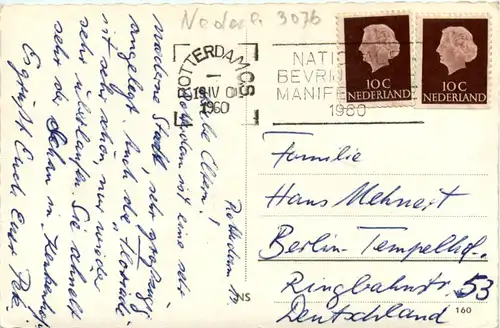 Nederl. 3076
ROTTERDAM CS
19 IV 01
1960
NATIO
BEVRI
MANIFE
1960
10 C
NEDERLAND
10 C
NEDERLAND
Rotterdam
Liebe Eltern!
Rotterdam ist eine sehr
moderne Stadt, sehr großzügig
angelegt. Auch die "Floriade"
ist sehr schön, nur wieder
sehr überlaufen. Sie ähnelt
sehr der Schau in
Es grüßt Euch Euer
Familie
Hans Mehnert
Berlin-Tempelhof.
Ringbahnstr. 53
Deutschland
NS
160